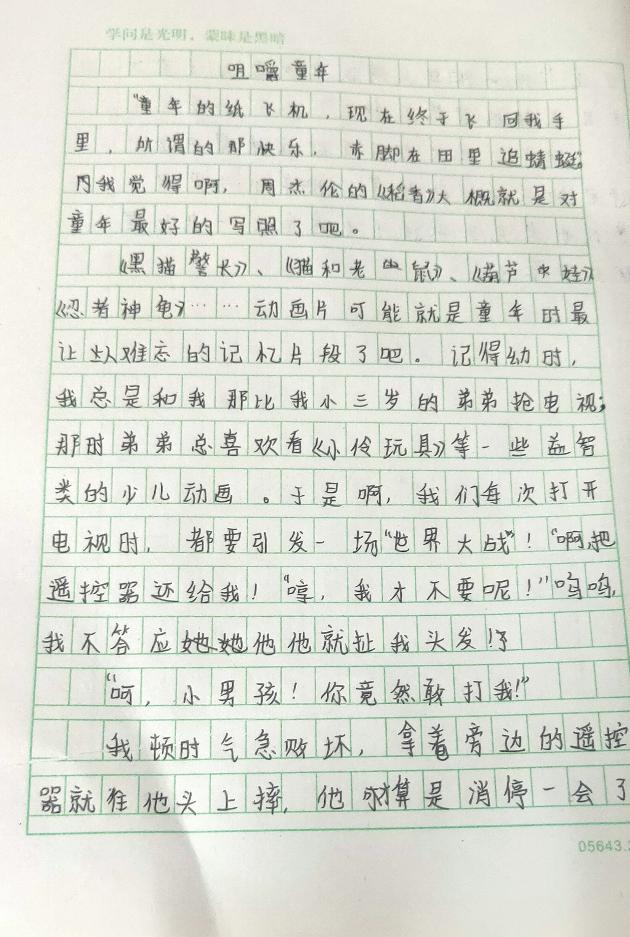 学问是光明，蒙昧是黑暗
咀嚼童年
“童年的纸飞机，现在终于飞回我手
里，所谓的那快乐，赤脚在田里追蜻蜓”
我觉得啊，周杰伦的《稻香》大概就是对
童年最好的写照了吧。
《黑猫警长》、《猫和老鼠》、《葫芦娃》
《忍者神龟》……动画片可能就是童年时最
让人难忘的记忆片段了吧。记得幼时，
我总是和我那比我小三岁的弟弟抢电视；
那时弟弟总喜欢看《小伶玩具》等一些益智
类的少儿动画。于是啊，我们每次打开
电视时，都要引发一场“世界大战”！“啊，把
遥控器还给我！“哼，我才不要呢！”呜呜，
我不答应她她他他就扯我头发！
“呵，小男孩！你竟然敢打我！”
我顿时气急败坏，拿着旁边的遥控
器就往他头上摔，他才算是消停一会了
05643.